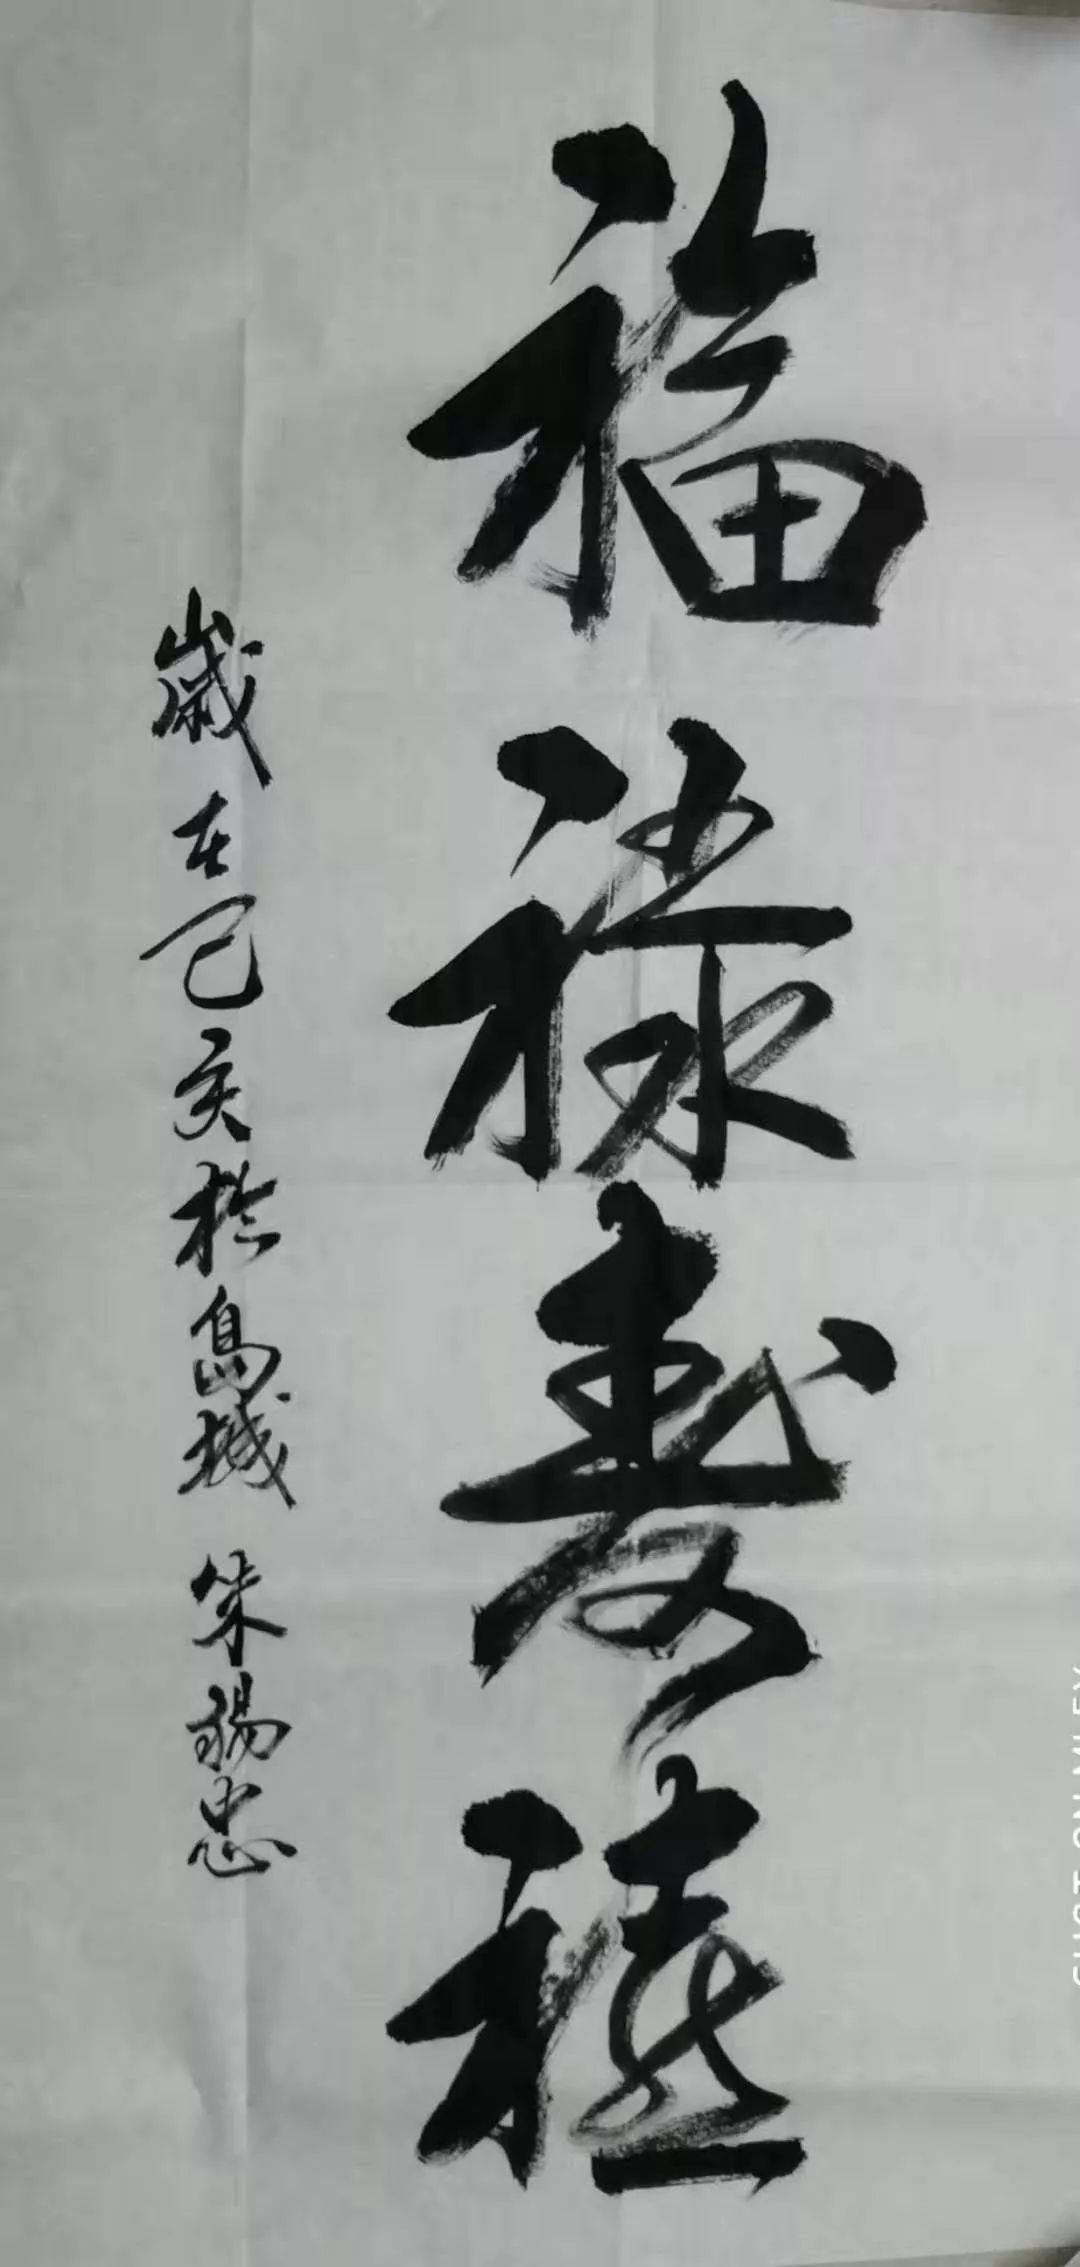 福禄寿禧
歲在己亥於島城 朱錫忠
SHOT ON MI 5X